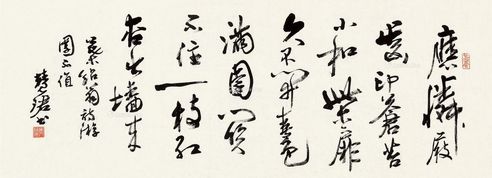 應憐屐
齒印蒼苔
小扣柴扉
久不開春色
滿園關
不住一枝紅
杏出墻來
葉紹翁詩游
園不值
慧珺书